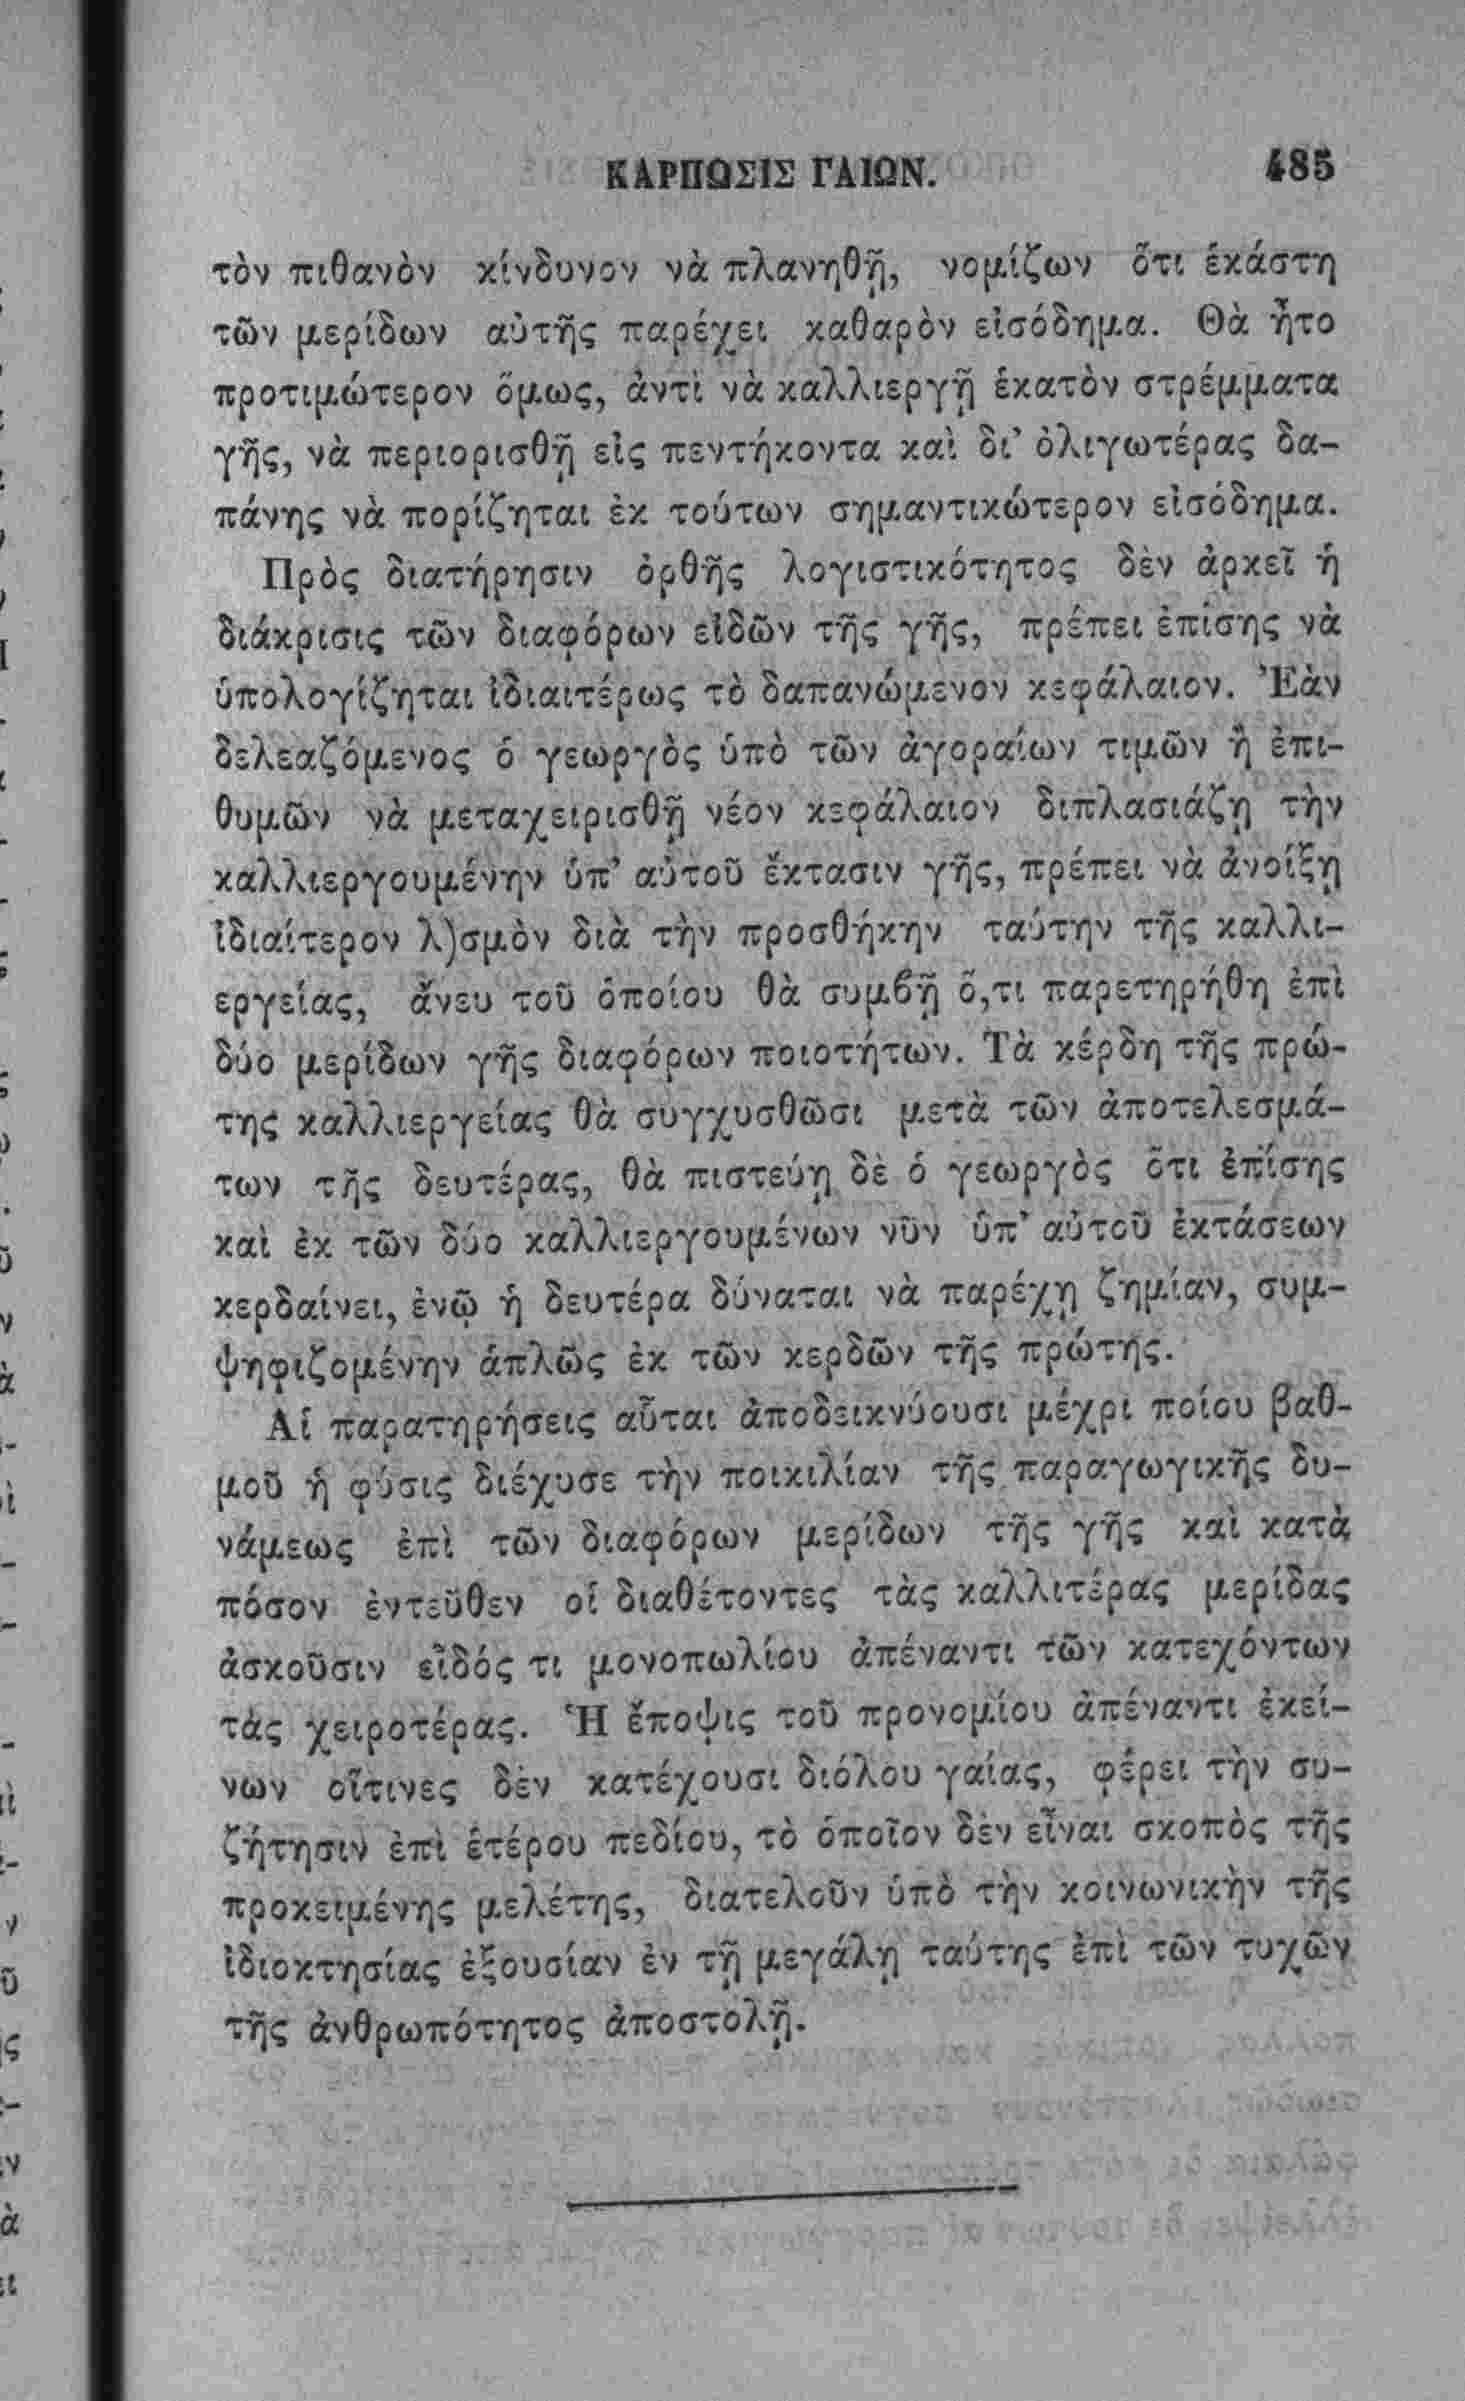 ΚΑΡΠΩΣΙΣ ΓΑΙΩΝ. 485
τὸν πιθανὸν κίνδυνον νὰ πλανηθῇ, νομίζων ὅτι ἑκάστη
τῶν μερίδων αὐτῆς παρέχει καθαρὸν εἰσόδημα. Θὰ ἦτο
προτιμώτερον ὅμως, ἀντὶ νὰ καλλιεργῇ ἑκατὸν στρέμματα
γῆς, νὰ περιορισθῇ εἰς πεντήκοντα καὶ δι’ ὀλιγωτέρας δα-
πάνης νὰ πορίζηται ἐκ τούτων σημαντικώτερον εἰσόδημα.
Πρὸς διατήρησιν ὀρθῆς λογιστικότητος δὲν ἀρκεῖ ἡ
διάκρισις τῶν διαφόρων εἰδῶν τῆς γῆς, πρέπει ἐπίσης νὰ
ὑπολογίζηται ἰδιαιτέρως τὸ δαπανώμενον κεφάλαιον. Ἐὰν
δελεαζόμενος ὁ γεωργὸς ὑπὸ τῶν ἀγοραίων τιμῶν ἢ ἐπι-
θυμῶν νὰ μεταχειρισθῇ νέον κεφάλαιον διπλασιάζῃ τὴν
καλλιεργουμένην ὑπ’ αὐτοῦ ἔκτασιν γῆς, πρέπει νὰ ἀνοίξῃ
ἰδιαίτερον λ)σμὸν διὰ τὴν προσθήκην ταύτην τῆς καλλι-
εργείας, ἄνευ τοῦ ὁποίου θὰ συμϐῇ ὅ,τι παρετηρήθη ἐπὶ
δύο μερίδων γῆς διαφόρων ποιοτήτων. Τὰ κέρδη τῆς πρώ-
της καλλιεργείας θὰ συγχυσθῶσι μετὰ τῶν ἀποτελεσμά-
των τῆς δευτέρας, θὰ πιστεύῃ δὲ ὁ γεωργὸς ὅτι ἐπίσης
καὶ ἐκ τῶν δύο καλλιεργουμένων νῦν ὑπ’ αὐτοῦ ἐκτάσεων
κερδαίνει, ἐνῷ ἡ δευτέρα δύναται νὰ παρέχῃ ζημίαν, συμ-
ψηφιζομένην ἁπλῶς ἐκ τῶν κερδῶν τῆς πρώτης.
Αἱ παρατηρήσεις αὗται ἀποδεικνύουσι μέχρι ποίου βαθ-
μοῦ ἡ φύσις διέχυσε τὴν ποικιλίαν τῆς παραγωγικῆς δυ-
νάμεως ἐπὶ τῶν διαφόρων μερίδων τῆς γῆς καὶ κατὰ
πόσον ἐντεῦθεν οἱ διαθέτοντες τὰς καλλιτέρας μερίδας
ἀσκοῦσιν εἶδός τι μονοπωλίου ἀπέναντι τῶν κατεχόντων
τὰς χειροτέρας. Ἡ ἔποψις τοῦ προνομίου ἀπέναντι ἐκεί-
νων οἵτινες δὲν κατέχουσι διόλου γαίας, φέρει τὴν συ-
ζήτησιν ἐπὶ ἑτέρου πεδίου, τὸ ὁποῖον δὲν εἶναι σκοπὸς τῆς
προκειμένης μελέτης, διατελοῦν ὑπὸ τὴν κοινωνικὴν τῆς
ἰδιοκτησίας ἐξουσίαν ἐν τῇ μεγάλῃ ταύτης ἐπὶ τῶν τυχῶν
τῆς ἀνθρωπότητος ἀποστολῇ.